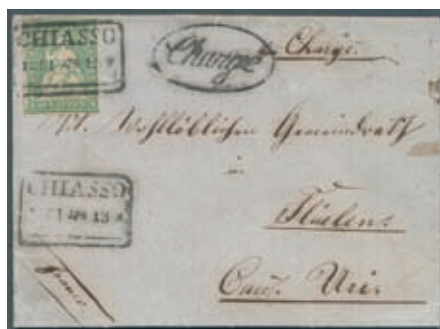 CHIASSO
Chargé
Chargé.
Wohllöblichen Gemeindrath
in
Flüelen.
CHIASSO
13
Cant. Uri.
franco